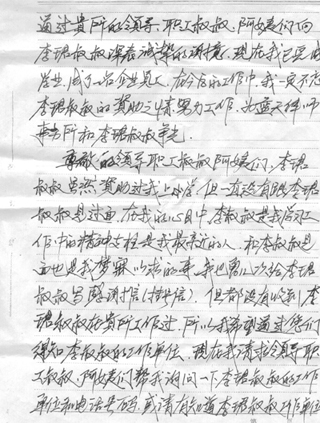 通过贵所的领导、职工叔叔、阿姨们向
李珺叔叔深表诚挚的谢意，现在我已要成
毕业，成了一名企业员工，在今后的工作中，我一定不忘
李珺叔叔的资助之情，努力工作，为蓝天
事务所和李珺叔叔争光。
尊敬的领导、职工叔叔、阿姨们，李珺
叔叔虽然资助过我上小学，但一直没有跟李珺
叔叔见过面，在我的心目中，李叔叔是我学习、
工作中的精神支柱，是我最亲近的人，和李叔叔见
面也是我梦寐以求的事，我也曾以次给李珺
叔叔写感谢信（挂号信），但都没有收到，李
珺叔叔在贵所工作过，所以我希望通过你们
得知李叔叔的工作单位，现在我请求领导、职
工叔叔、阿姨们帮我询问一下，李珺叔叔的工作
单位和电话号码，或请有知道李珺叔叔工作单位